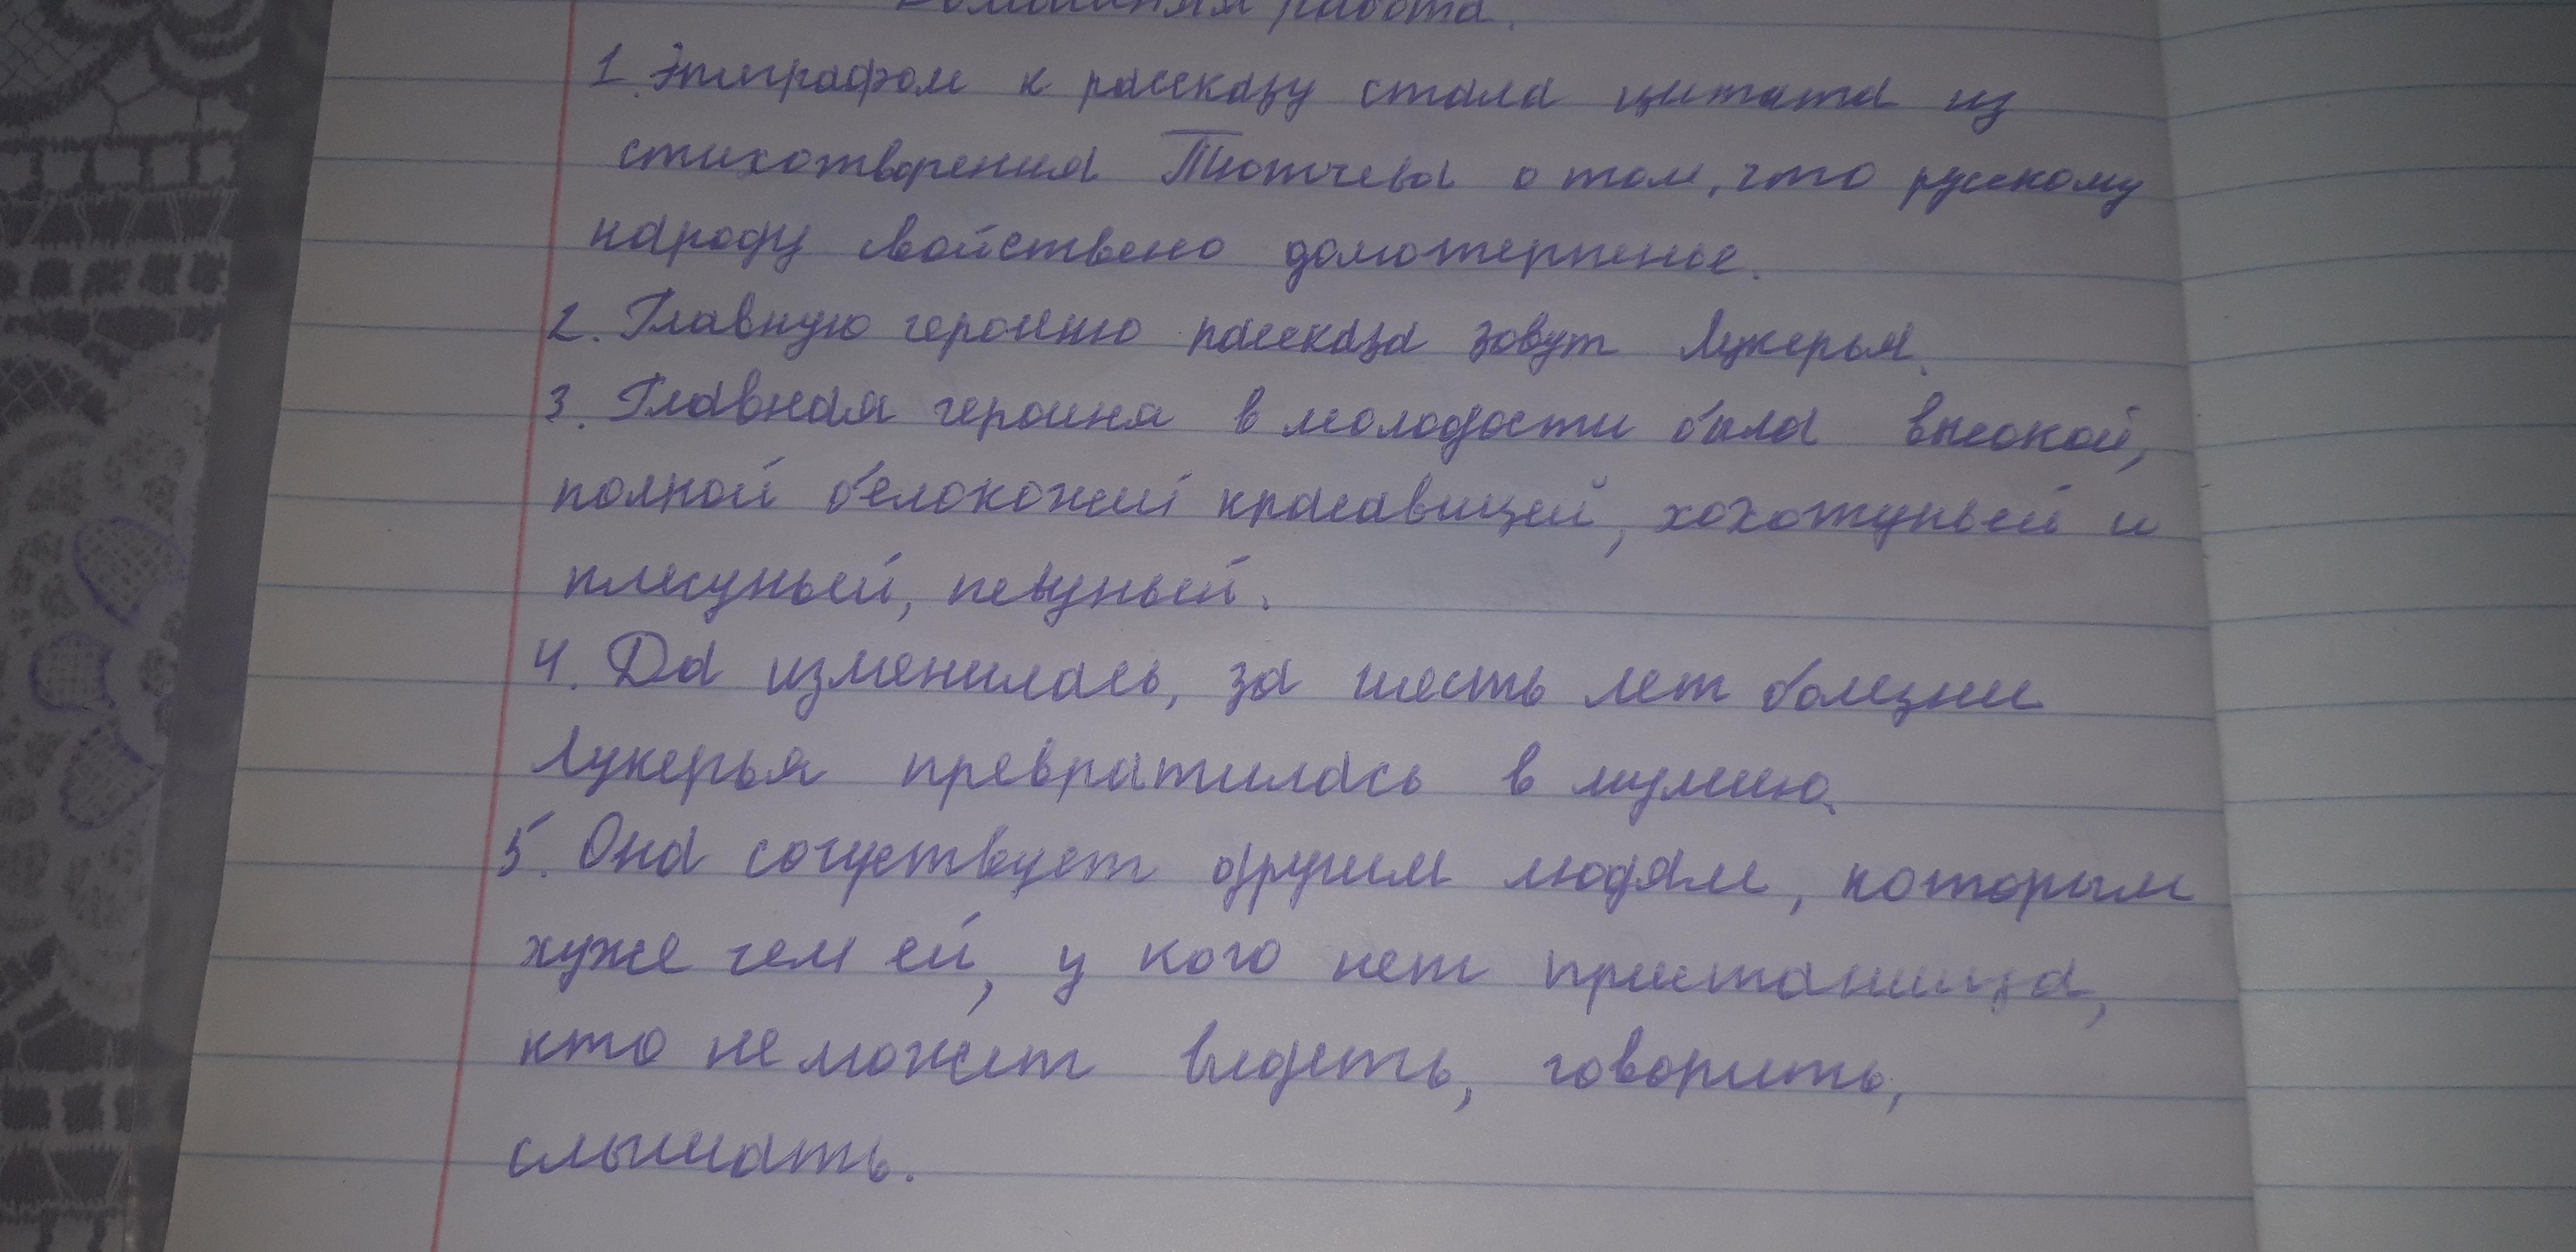 Домашняя работа.
1. Эпиграфом к рассказу стала цитата из
стихотворения Тютчева о том, что русскому
народу свойствено долготерпенье.
2. Главную героиню рассказа зовут Лукерья.
3. Главная героиня в молодости была высокой,
полной белокожей красавицей, хохотуньей и
плясуньей, певуньей.
4. Да изменилась, за шесть лет болезни
Лукерья превратилась в мумию.
5. Она сочуствует другим людям, которым
хуже чем ей, у кого нет пристанища,
кто не может видеть, говорить,
слышать.